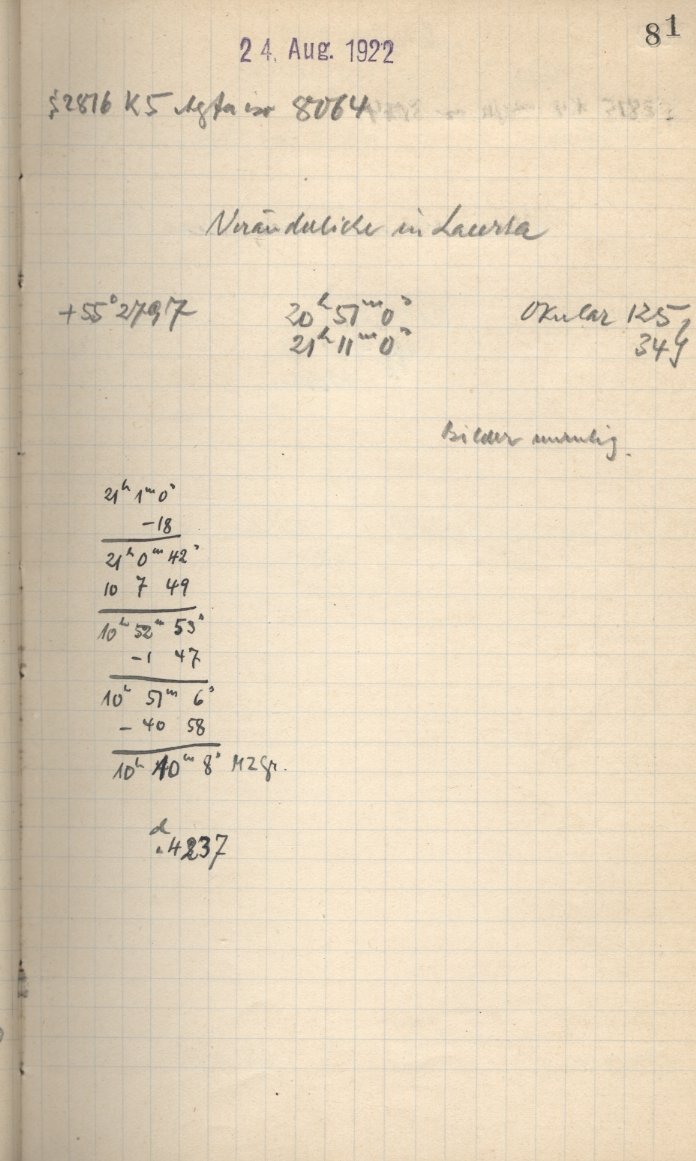 81
24. Aug. 1922
§2816 K5 Agfa iso 8064
Veränderliche in Lacerta
+55°2797 20ʰ51ᵐ0ˢ Okular 125,
21ʰ11ᵐ0ˢ 34,
Bilder unruhig.
21ʰ1ᵐ0ˢ
-18
21ʰ0ᵐ42ˢ
10 7 49
10ʰ52ᵐ53ˢ
-1 47
10ʰ 51ᵐ 6ˢ
- 40 58
10ʰ 10ᵐ 8ˢ MZGr.
d
.4237